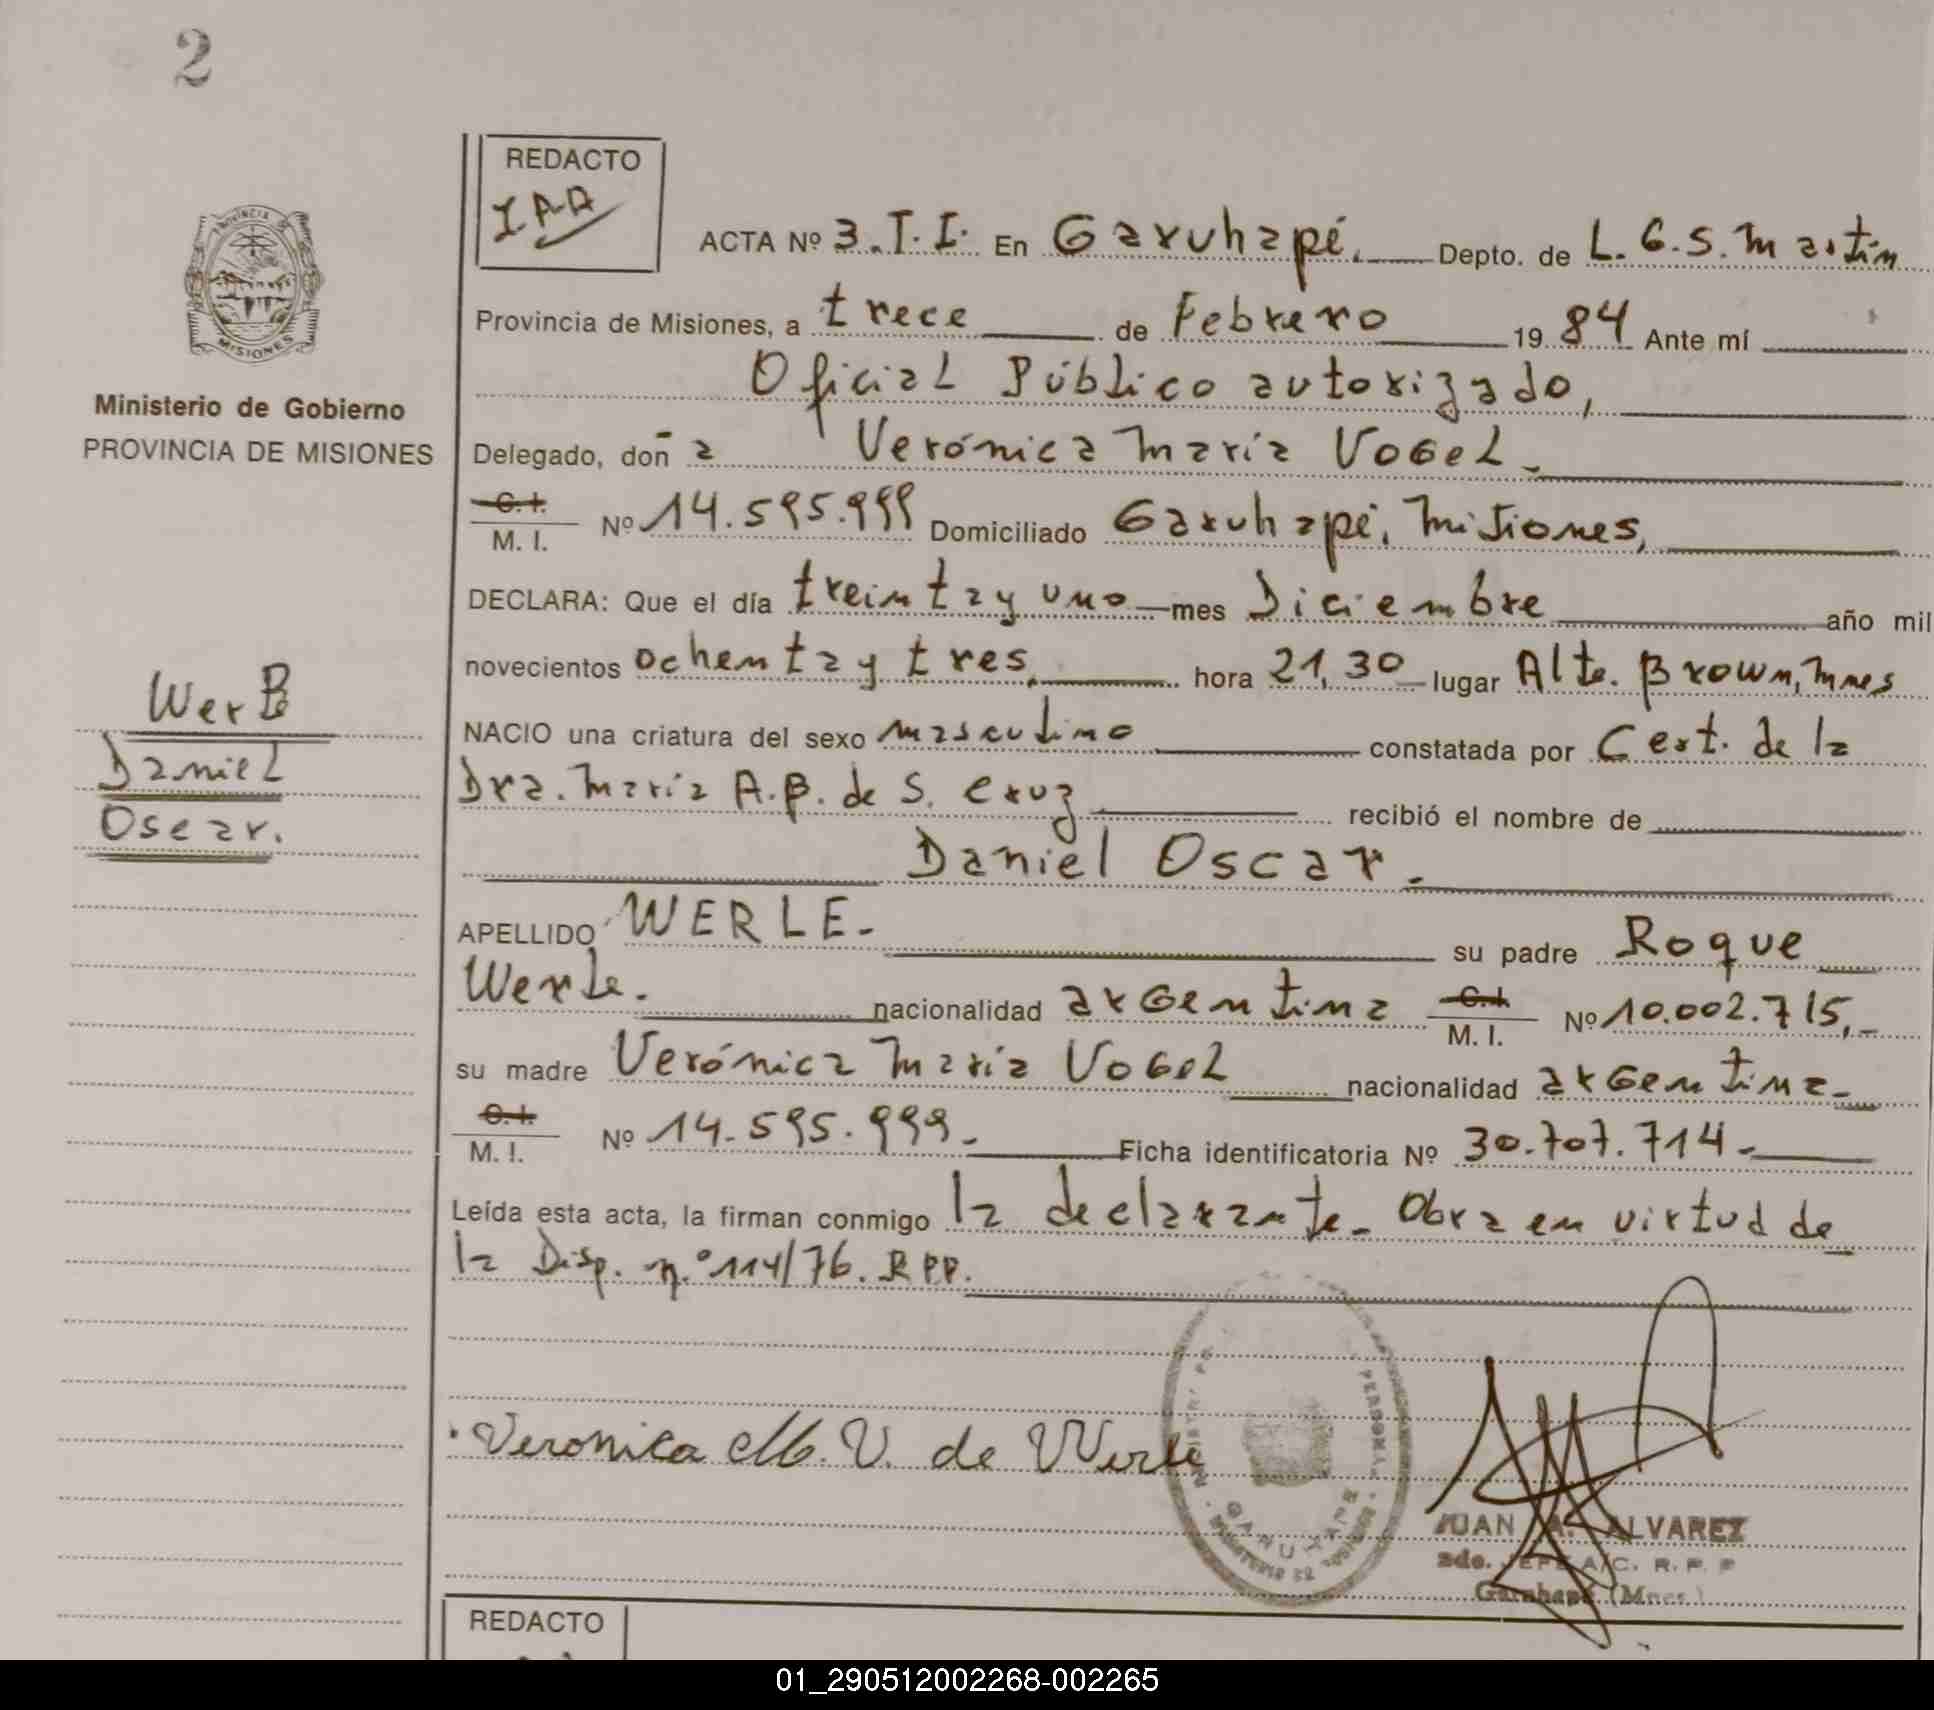 2
REDACTO
I A A
ACTA Nº 3.T.I. En Garuhapé. Depto. de L.G.S.Martín
Provincia de Misiones, a trece de Febrero 1984 Ante mí
Oficial Público autorizado,
Delegado, doña Verónica María Vogel.
C.I.
M. I. Nº 14.595.999 Domiciliado Garuhapé, Misiones,
DECLARA: Que el día treinta y uno mes Diciembre año mil
novecientos ochenta y tres, hora 21,30 lugar Alte. Brown, Mnes
NACIO una criatura del sexo masculino constatada por Cert. de la
Dra. María A.B. de S. Cruz recibió el nombre de
Daniel Oscar.
APELLIDO WERLE. su padre Roque
Werle. nacionalidad argentina C.I.
M. I. Nº 10.002.715,
su madre Verónica María Vogel nacionalidad argentina
C.I.
M. I. Nº 14.595.999. Ficha identificatoria Nº 30.707.714.
Leída esta acta, la firman conmigo la declarante. Obra en virtud de
la Disp. n.º 114/76. RPP.
Veronica M. V. de Werle
JUAN A. ALVAREZ
2do. JEFE A/C. R. P. P
Garuhapé (Mnes.)
REDACTO
PROVINCIA DE
MISIONES
Ministerio de Gobierno
PROVINCIA DE MISIONES
Daniel
Oscar.
01_290512002268-002265